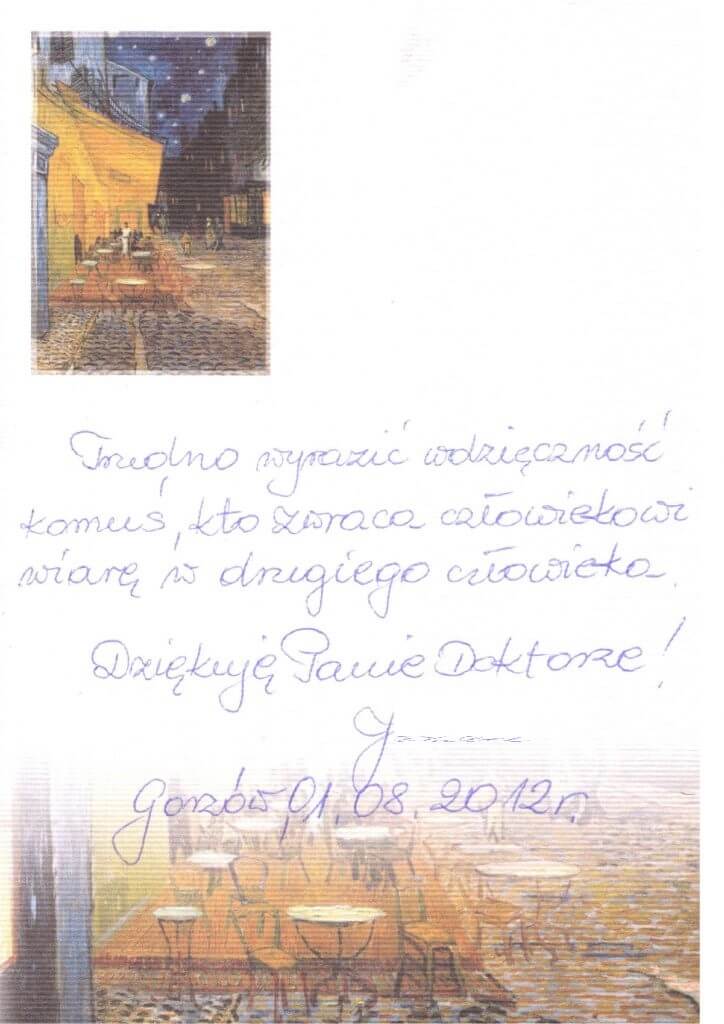 Trudno wyrazić wdzięczność
komuś, kto zwraca człowiekowi
wiarę w drugiego człowieka.
Dziękuję Panie Doktorze!
Gorzów, 01.08.2012r.